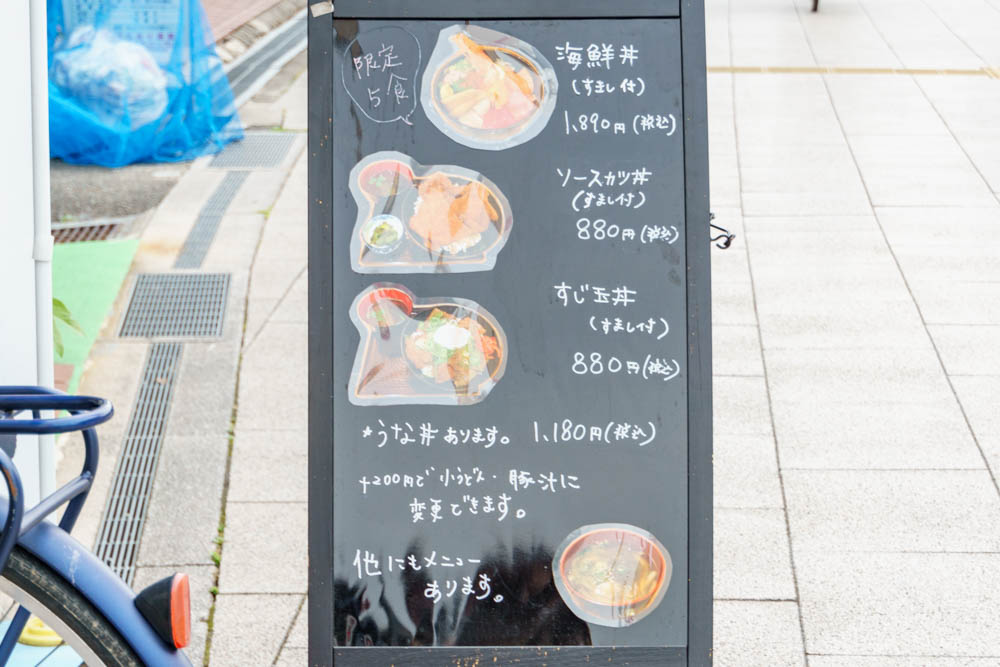 限定
5食
海鮮丼
(すまし付)
1,890円(税込)
ソースカツ丼
(すまし付)
880円(税込)
すじ玉丼
(すまし付)
880円(税込)
*うな丼あります。 1,180円(税込)
+200円で小うどん・豚汁に
変更できます。
他にもメニュー
あります。